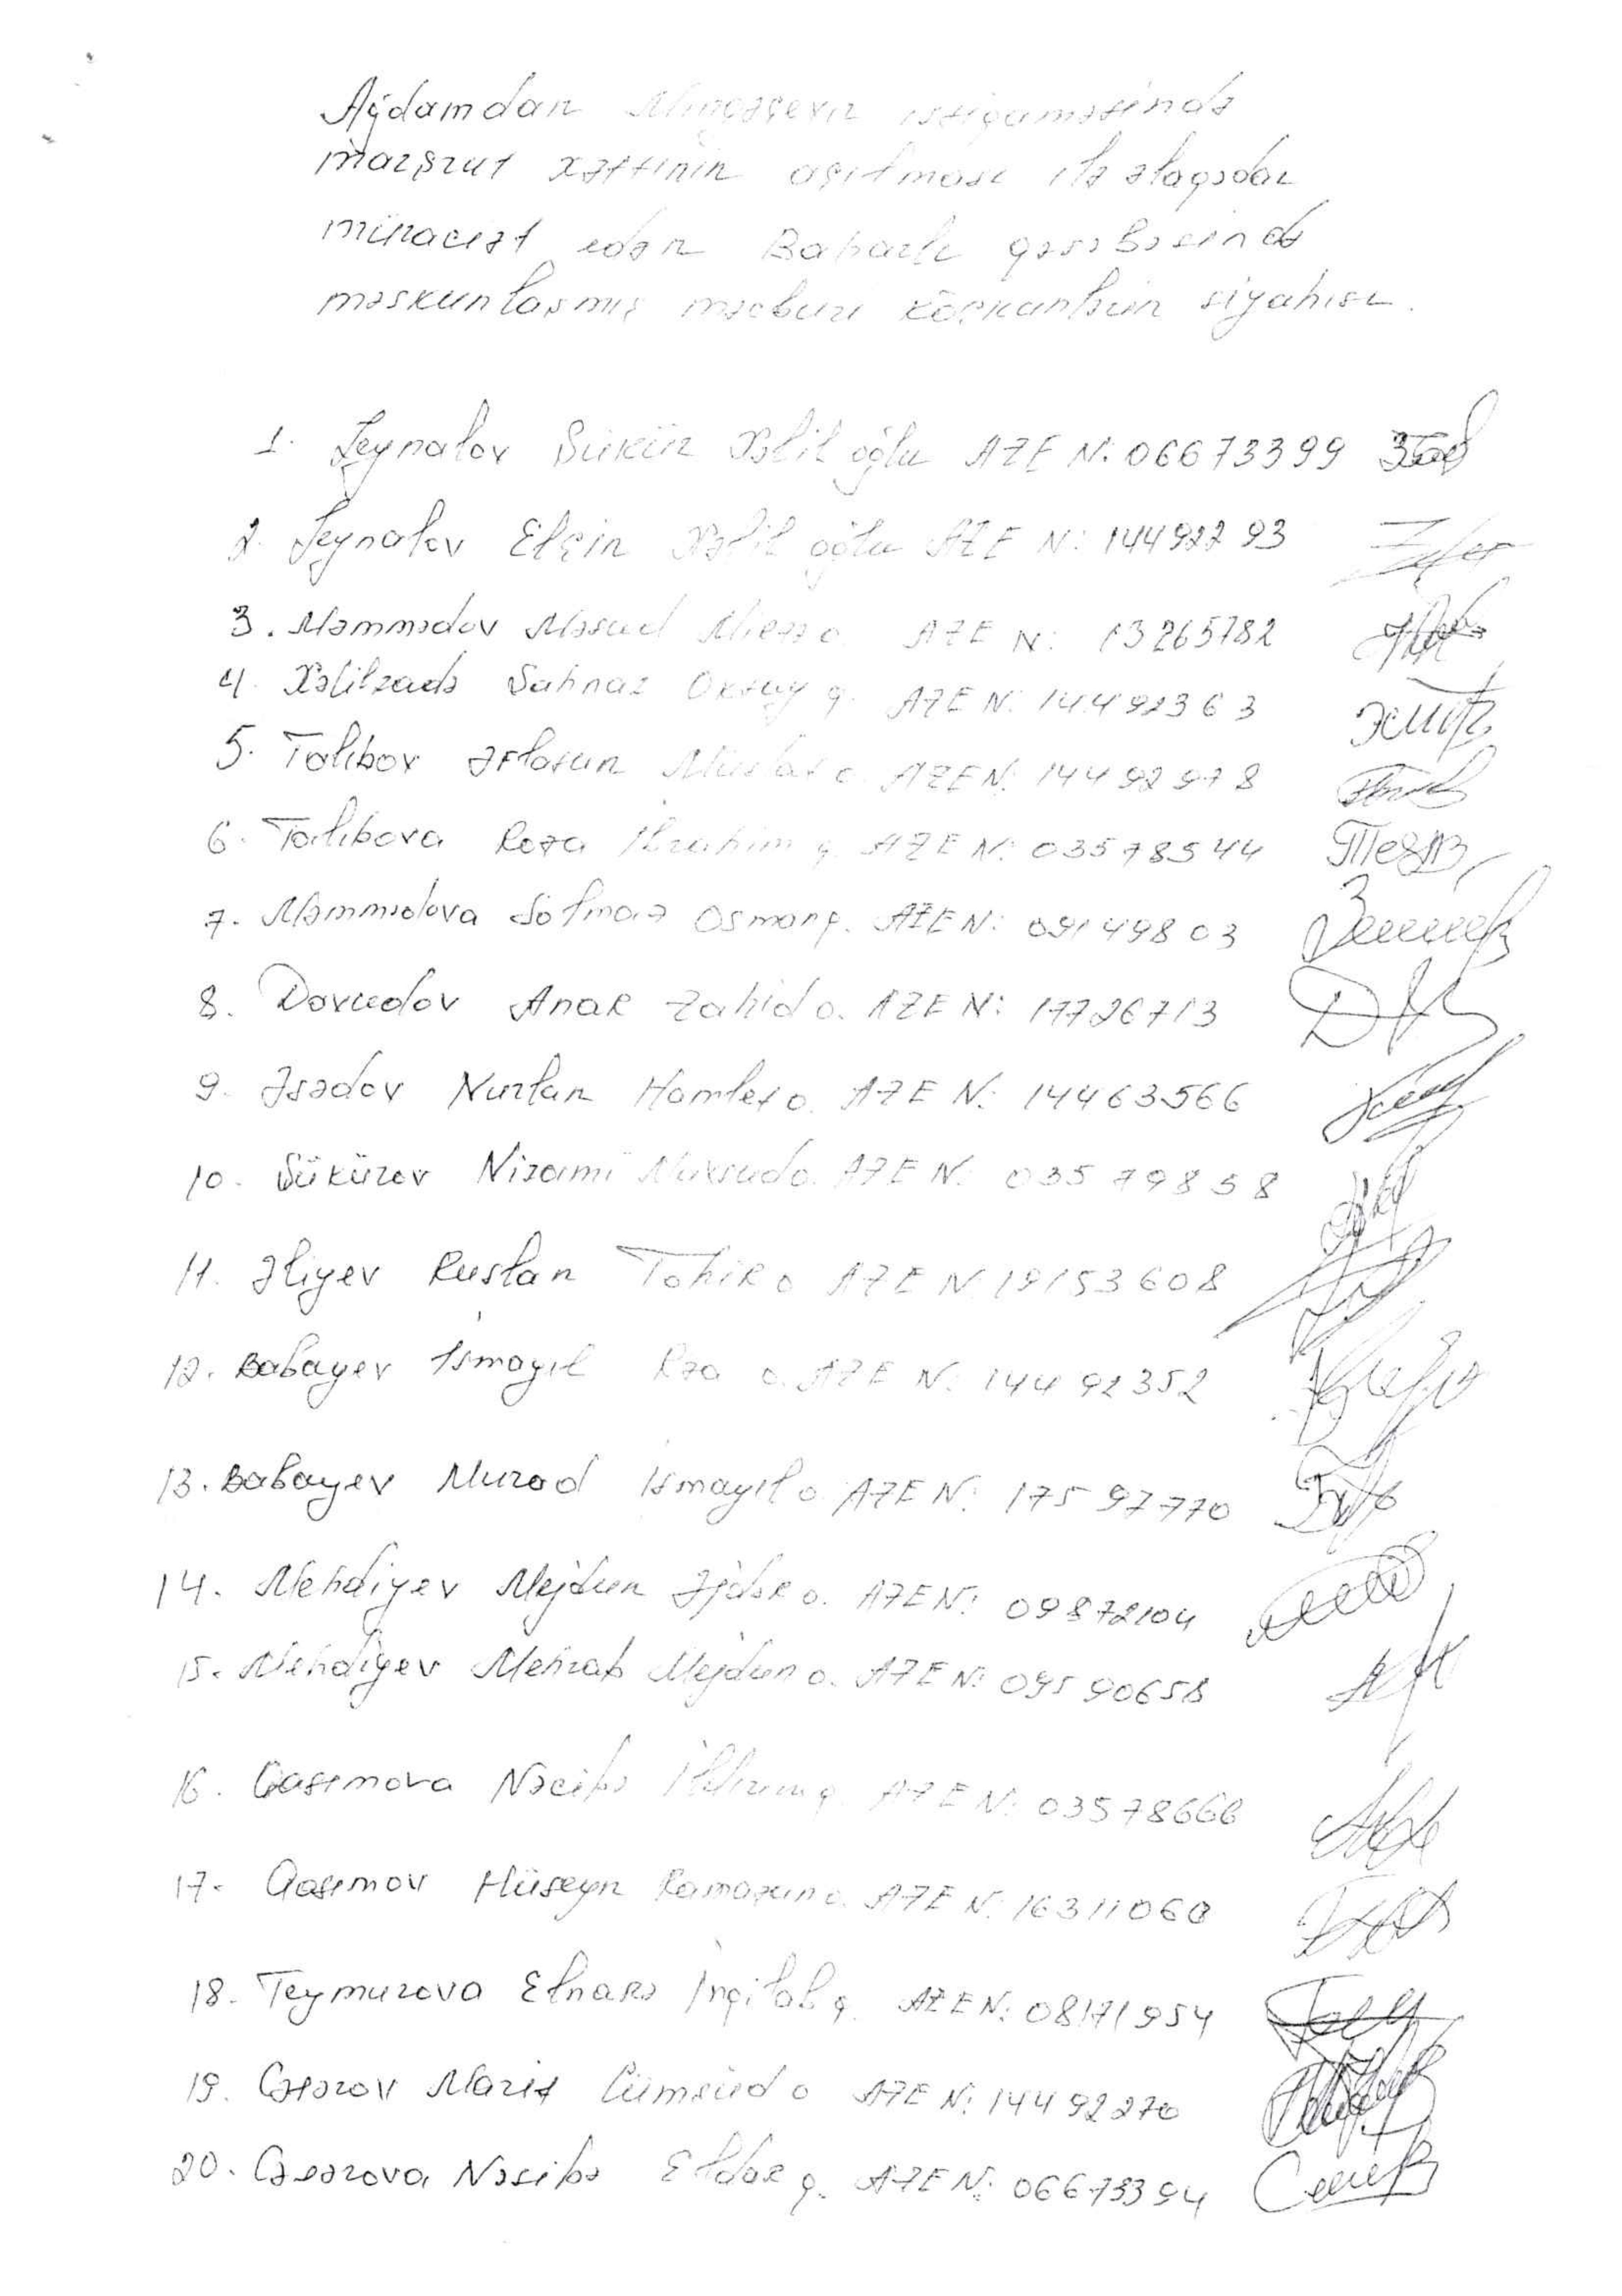 Ağdamdan Mingəçevir istiqamətində
marşrut xəttinin açılması ilə əlaqədar
müraciət edən Baharlı qəsəbəsində
məskunlaşmış məcburi köçkünlərin siyahısı.
1. Zeynalov Şükür Xəlil oğlu AZE N: 06673399
2. Zeynalov Elçin Xəlil oğlu AZE N: 14492293
3. Məmmədov Məsud Mirzə o. AZE N: 13265782
4. Xəlilzadə Şahnaz Oktay q. AZE N: 14492363
5. Talıbov Əflatun o. AZE N: 14492978
6. Talıbova Roza İbrahim q. AZE N: 03578544
7. Məmmədova Solmaz Osman q. AZE N: 09149803
8. Davudov Anar Zahid o. AZE N: 17726713
9. Əsədov Nurlan Hamlet o. AZE N: 14463566
10. Şükürov Nizami Maxsud o. AZE N: 03579858
11. Əliyev Ruslan Tahir o AZE N 19153608
12. Babayev İsmayıl Rza o. AZE N: 14492352
13. Babayev Murad İsmayıl o. AZE N: 17597770
14. Mehdiyev Mejdun Əjdər o. AZE N: 09872104
15. Mehdiyev Mehrab Mejdun o. AZE N: 09590658
16. Qasımova Nəcibə q. AZE N: 03578666
17. Qasımov Hüseyn Ramazan o. AZE N: 16311060
18. Teymurova Elnarə İnqilab q. AZE N: 08171954
19. Cəfərov Mazif Cümşüd o AZE N: 14492270
20. Cəfərova Nəsibə Eldar q. AZE N: 06673394